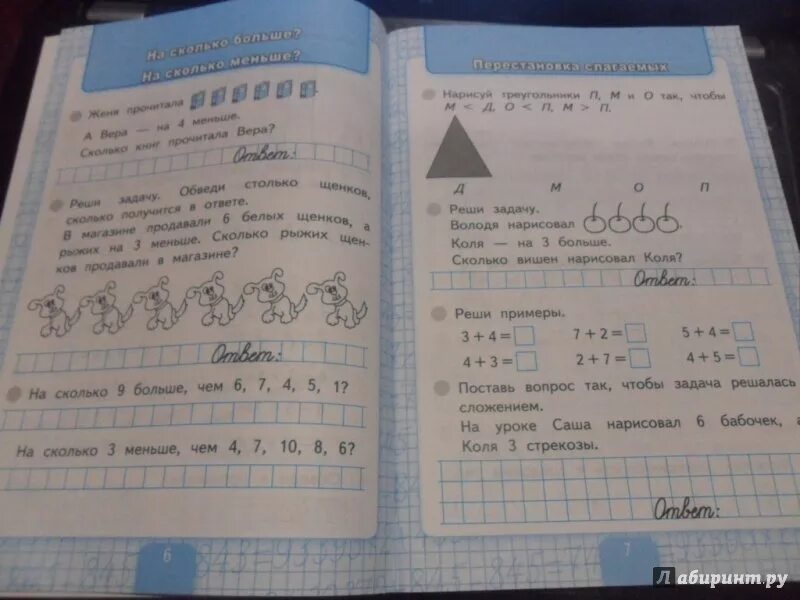 На сколько больше?
На сколько меньше?
Женя прочитала
А Вера — на 4 меньше.
Сколько книг прочитала Вера?
Ответ:
Реши задачу. Обведи столько щенков,
сколько получится в ответе.
В магазине продавали 6 белых щенков, а
рыжих на 3 меньше. Сколько рыжих щен-
ков продавали в магазине?
Ответ:
На сколько 9 больше, чем 6, 7, 4, 5, 1?
На сколько 3 меньше, чем 4, 7, 10, 8, 6?
6
Перестановка слагаемых
Нарисуй треугольники П, М и О так, чтобы
М < Д, О < П, М > П.
Д М О П
Реши задачу.
Володя нарисовал
Коля — на 3 больше.
Сколько вишен нарисовал Коля?
Ответ:
Реши примеры.
3 + 4 = 7 + 2 = 5 + 4 =
4 + 3 = 2 + 7 = 4 + 5 =
Поставь вопрос так, чтобы задача решалась
сложением.
На уроке Саша нарисовал 6 бабочек, а
Коля 3 стрекозы.
Ответ:
7
Лабиринт.ру